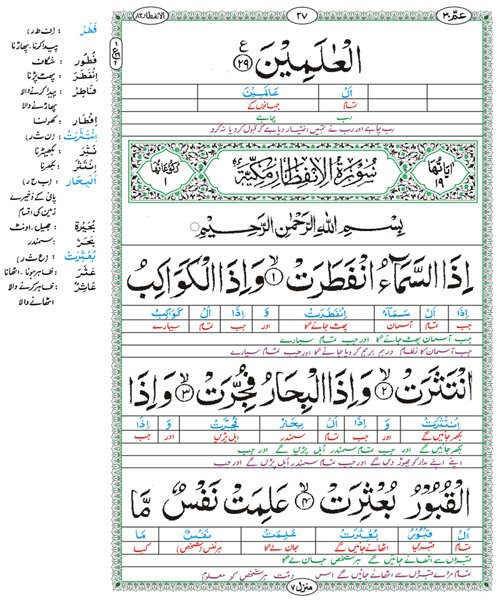 عمّ ٣٠
٣٧
الانفطار ٨٢
الْعٰلَمِيْنَ ٢٩
اَلْ عَالَمِيْنَ
تمام جہانوں کے
رب چاہے
اٰيَاتُهَا ١٩
سُوْرَةُ الْاِنْفِطَارِ مَكِّيَّةٌ
رُكُوْعَاتُهَا ١
بِسْمِ اللّٰهِ الرَّحْمٰنِ الرَّحِيْمِ
اِذَا السَّمَآءُ انْفَطَرَتْ ١ وَاِذَا الْكَوَاكِبُ
اِذَا اَلْ سَمَآءُ اِنْفَطَرَتْ وَ اِذَا اَلْ كَوَاكِبُ
جب تمام آسمان پھٹ جائے گا اور جب تمام سیارے
جب آسمان پھٹ جائے گا اور جب تمام سیارے
جب آسمان کا نظام درہم برہم کر دیا جائے گا اور جب تمام سیارے
انْتَثَرَتْ ٢ وَاِذَا الْبِحَارُ فُجِّرَتْ ٣ وَاِذَا
اِنْتَثَرَتْ وَ اِذَا اَلْ بِحَارُ فُجِّرَتْ وَ اِذَا
بکھر جائیں گے اور جب تمام سمندر ابل پڑیں گے اور جب
بکھر جائیں گے اور جب تمام سمندر ابل پڑیں گے اور جب
اپنے اپنے مدار کو چھوڑ دیں گے اور جب تمام سمندر ابل پڑیں گے اور جب
الْقُبُوْرُ بُعْثِرَتْ ٤ عَلِمَتْ نَفْسٌ مَّا
اَلْ قُبُوْرُ بُعْثِرَتْ عَلِمَتْ نَفْسٌ مَا
تمام قبریں اٹھائے جائیں گے جان لے گا ہر نفس (شخص) کیا
قبروں سے اٹھائے جائیں گے ہر شخص جان لے گا
منزل ٧
فَطَرَ : (ف ط ر)
پیدا کرنا، پھاڑنا
فُطُور : شگاف
اِنْفَطَرَ : پھٹ پڑنا
فَاطِر : پیدا کرنے والا
پھاڑنے والا
اِفْطَار : کھولنا
اِنْتَثَرَتْ : (ن ث ر)
نَثَرَ : بکھیرنا
اِنْتَثَرَ : بکھرنا
اَلْبِحَار : (ب ح ر)
پانی کے ذخیرے
زمین کی اقسام
بُحَيْرَة : جھیل، اونٹ
بَحْر : سمندر
بُعْثِرَتْ : (ع ث ر)
عَثَرَ : ظاہر ہونا، اٹھانا
عَاثِر : ظاہر کرنے والا
اٹھانے والا